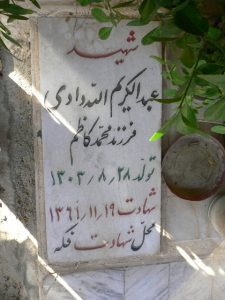 شهید
عبدالکریم الله‌دادی
فرزند محمدکاظم
تولد ۱۳۰۳/۸/۲۸
شهادت ۱۳۶۱/۱۱/۱۹
محل شهادت فکه